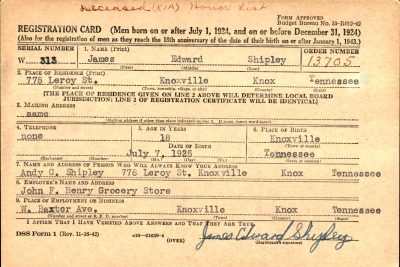 Deceased (KIA) Honor List
Form Approved
Budget Bureau No. 33-R012-42
REGISTRATION CARD (Men born on or after July 1, 1924, and on or before December 31, 1924)
(Also for the registration of men as they reach the 18th anniversary of the date of their birth on or after January 1, 1943.)
SERIAL NUMBER 1. NAME (Print) ORDER NUMBER
W 313 James Edward Shipley 13705
(First) (Middle) (Last)
2. PLACE OF RESIDENCE (Print)
778 Leroy St. Knoxville Knox Tennessee
(Number and street) (Town, township, village, or city) (County) (State)
[THE PLACE OF RESIDENCE GIVEN ON LINE 2 ABOVE WILL DETERMINE LOCAL BOARD
JURISDICTION; LINE 2 OF REGISTRATION CERTIFICATE WILL BE IDENTICAL]
3. MAILING ADDRESS
same
[Mailing address if other than place indicated on line 2. If same, insert word same]
4. TELEPHONE 5. AGE IN YEARS 6. PLACE OF BIRTH
none 18 Knoxville
DATE OF BIRTH (Town or county)
July 7, 1925 Tennessee
(Mo.) (Day) (Yr.) (State or country)
7. NAME AND ADDRESS OF PERSON WHO WILL ALWAYS KNOW YOUR ADDRESS
Andy C. Shipley 778 Leroy St. Knoxville Knox Tennessee
8. EMPLOYER'S NAME AND ADDRESS
John F. Henry Grocery Store
9. PLACE OF EMPLOYMENT OR BUSINESS
W. Baxter Ave. Knoxville Knox Tennessee
(Number and street or R. F. D. number) (Town) (County) (State)
I AFFIRM THAT I HAVE VERIFIED ABOVE ANSWERS AND THAT THEY ARE TRUE.
DSS Form 1 (Rev. 11-16-42) (OVER) James Edward Shipley
(Registrant's signature)